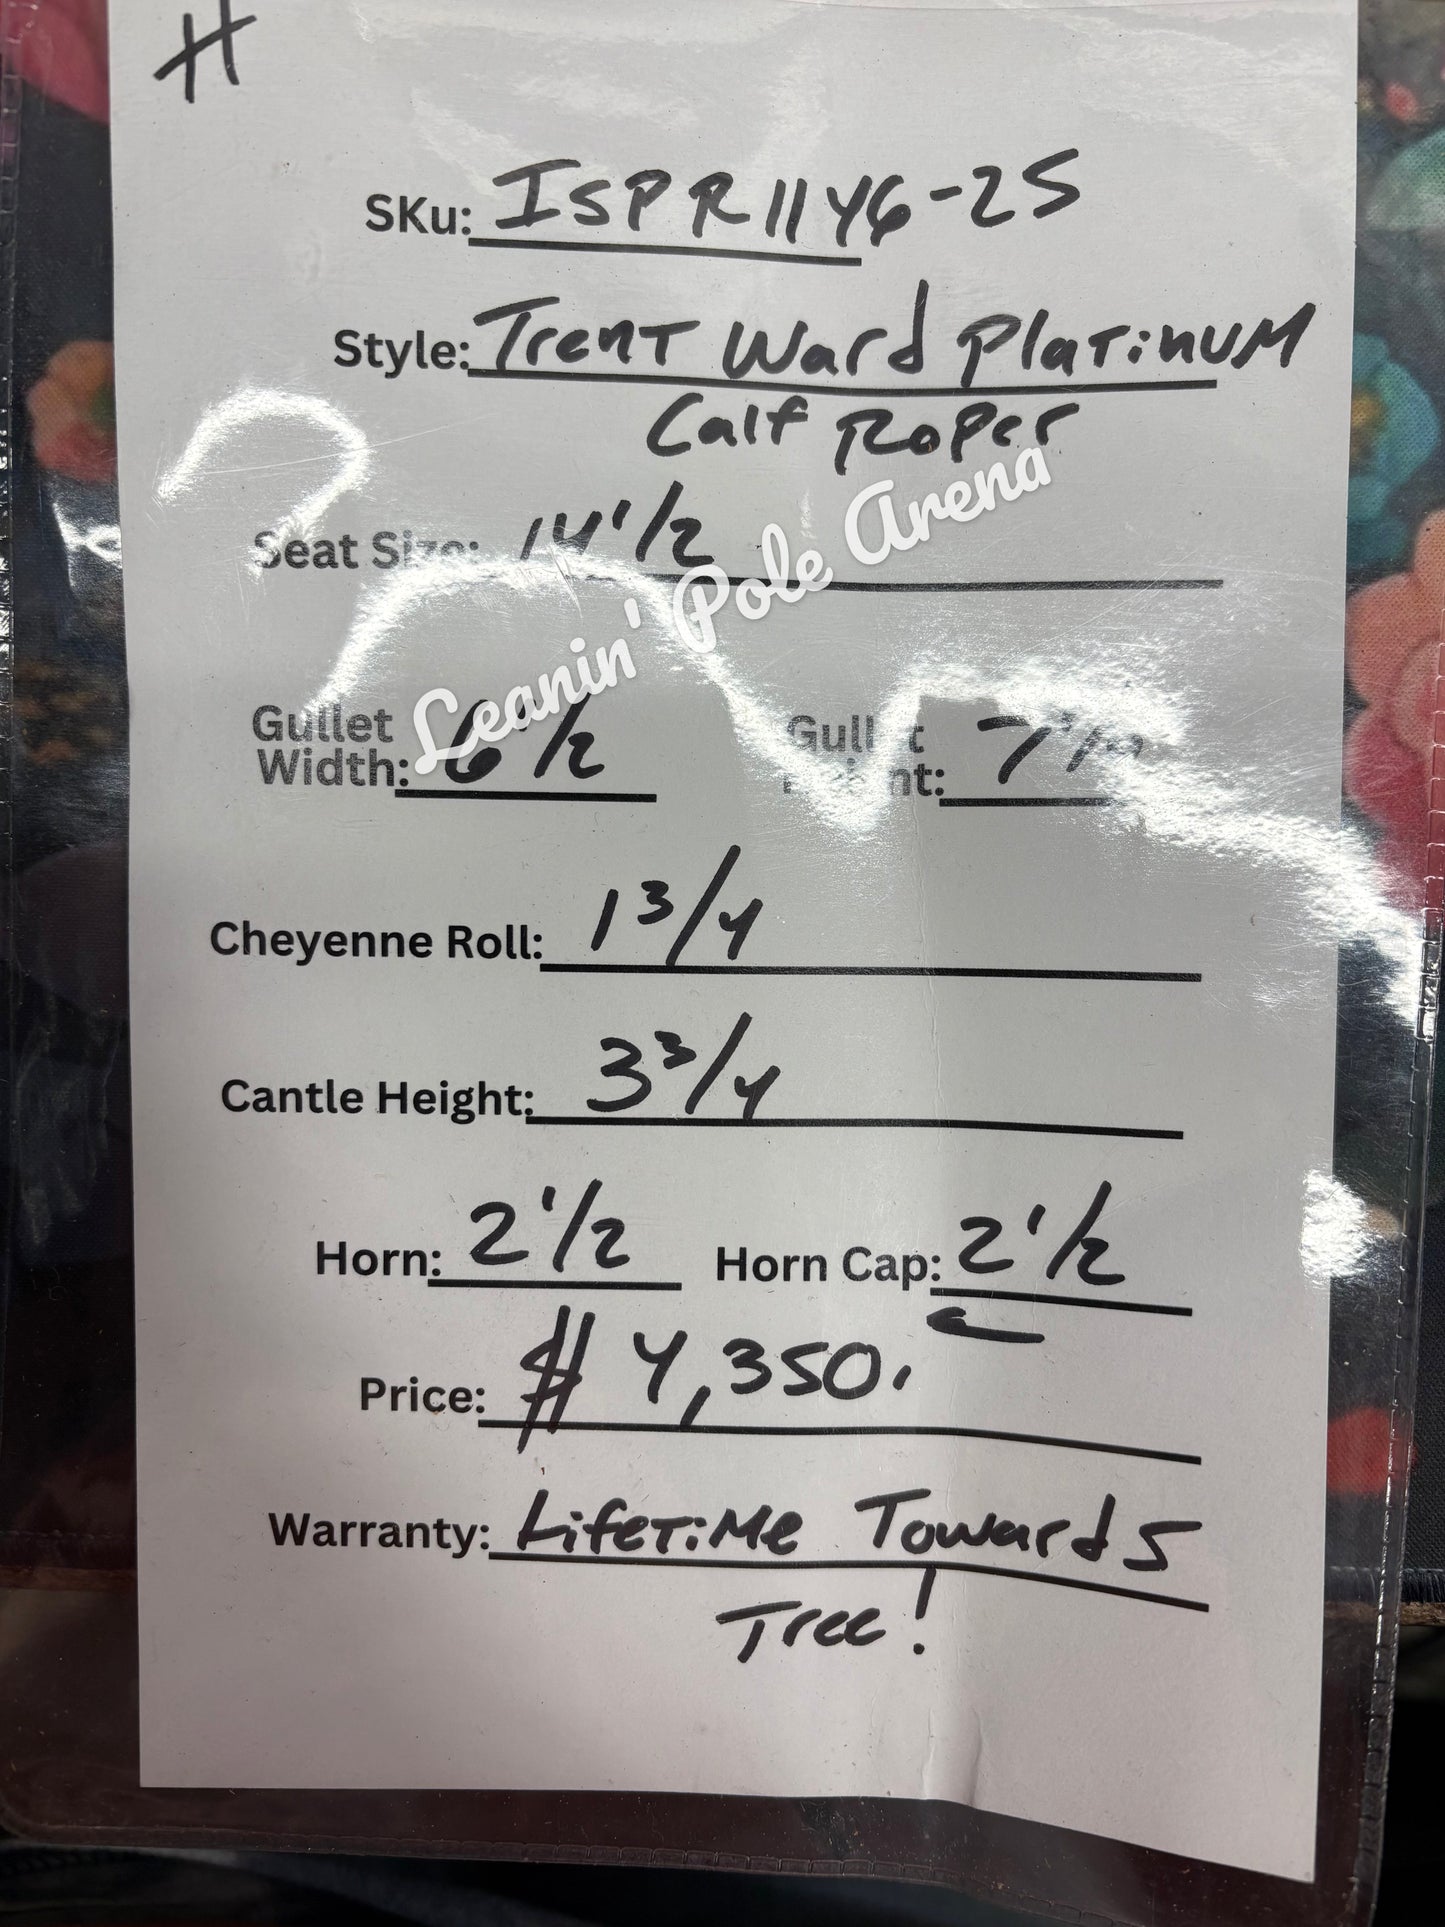 H
SKu: ISPR1146-25
Style: Trent Ward Platinum
Calf Roper
Seat Size: 14 1/2
Leanin' Pole Arena
Gullet Width: 6 1/2 Gullet 7 1/2
Cheyenne Roll: 1 3/4
Cantle Height: 3 3/4
Horn: 2 1/2 Horn Cap: 2 1/2
Price: $4,350.
Warranty: Lifetime Towards
Tree!